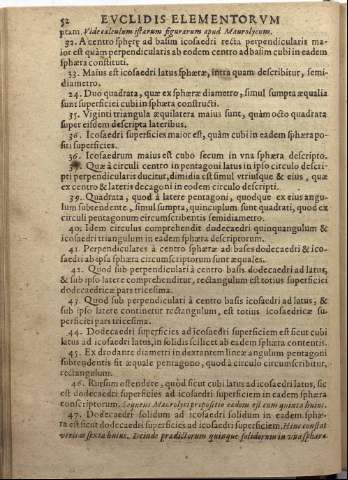 52 EVCLIDIS ELEMENTORVM
ptam. Vide calculum istarum figurarum apud Maurolycum.
32. A centro sphęrę ad basim icosaedri recta perpendicularis ma-
ior est quàm perpendicularis ab eodem centro ad basim cubi in eadem
sphæra constituti.
33. Maius est icosaedri latus sphæræ, intra quam describitur, semi-
diametro.
24. Duo quadrata, quæ ex sphæræ diametro, simul sumpta æqualia
sunt superficiei cubi in sphæra constructi.
35. Viginti triangula æquilatera maius sunt, quàm octo quadrata
super eisdem descripta lateribus.
36. Icosaedri superficies maior est, quàm cubi in eadem sphæra po-
siti superficies.
36. Icosaedrum maius est cubo secum in vna sphæra descripto.
Quæ à circuli centro in pentagoni latus in ipso circulo descri-
pti perpendicularis ducitur, dimidia est simul vtriusque & eius, quæ
ex centro & lateris decagoni in eodem circulo descripti.
39. Quadrata, quod à latere pentagoni, quodque ex eius angu-
lum subtendente, simul sumpta, quincuplum sunt quadrati, quod ex
circuli pentagonum circumscribentis semidiametro.
40. Idem circulus comprehendit dodecaedri quinquangulum &
icosaedri triangulum in eadem sphæra descriptorum.
41. Perpendiculares à centro sphæræ ad bases dodecaedri & ico-
saedri ab ipsa sphæra circumscriptorum sunt æquales.
42. Quod sub perpendiculari à centro basis dodecaedri ad latus,
& sub ipso latere comprehenditur, rectangulum est totius superficiei
dodecaedricæ pars tricesima.
43. Quod sub perpendiculari à centro basis icosaedri ad latus, &
sub ipso latere continetur rectangulum, est totius icosaedricæ su-
perficiei pars tricesima.
44. Dodecaedri superficies ad icosaedri superficiem est sicut cubi
latus ad icosaedri latus, in solidis scilicet ab eadem sphæra contentis.
45. Ex drodante diametri in dextantem lineæ angulum pentagoni
subtendentis fit æquale pentagono, quod à circulo circumscribitur,
rectangulum.
46. Rursum ostendere, quòd sicut cubi latus ad icosaedri latus, sic
est dodecaedri superficies ad icosaedri superficiem in eadem sphæra
conscriptorum. Sequens Maurolyci propositio eadem est cum quinta huius.
47. Dodecaedri solidum ad icosaedri solidum in eadem sphæ-
ra est sicut dodecaedri superficies ad icosaedri superficiem. Hinc constat
veritas sexta huius. Deinde prædictorum quinque solidorum in vna sphæra